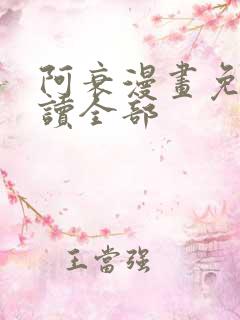 阿衰漫畫免
讀全部
王當强